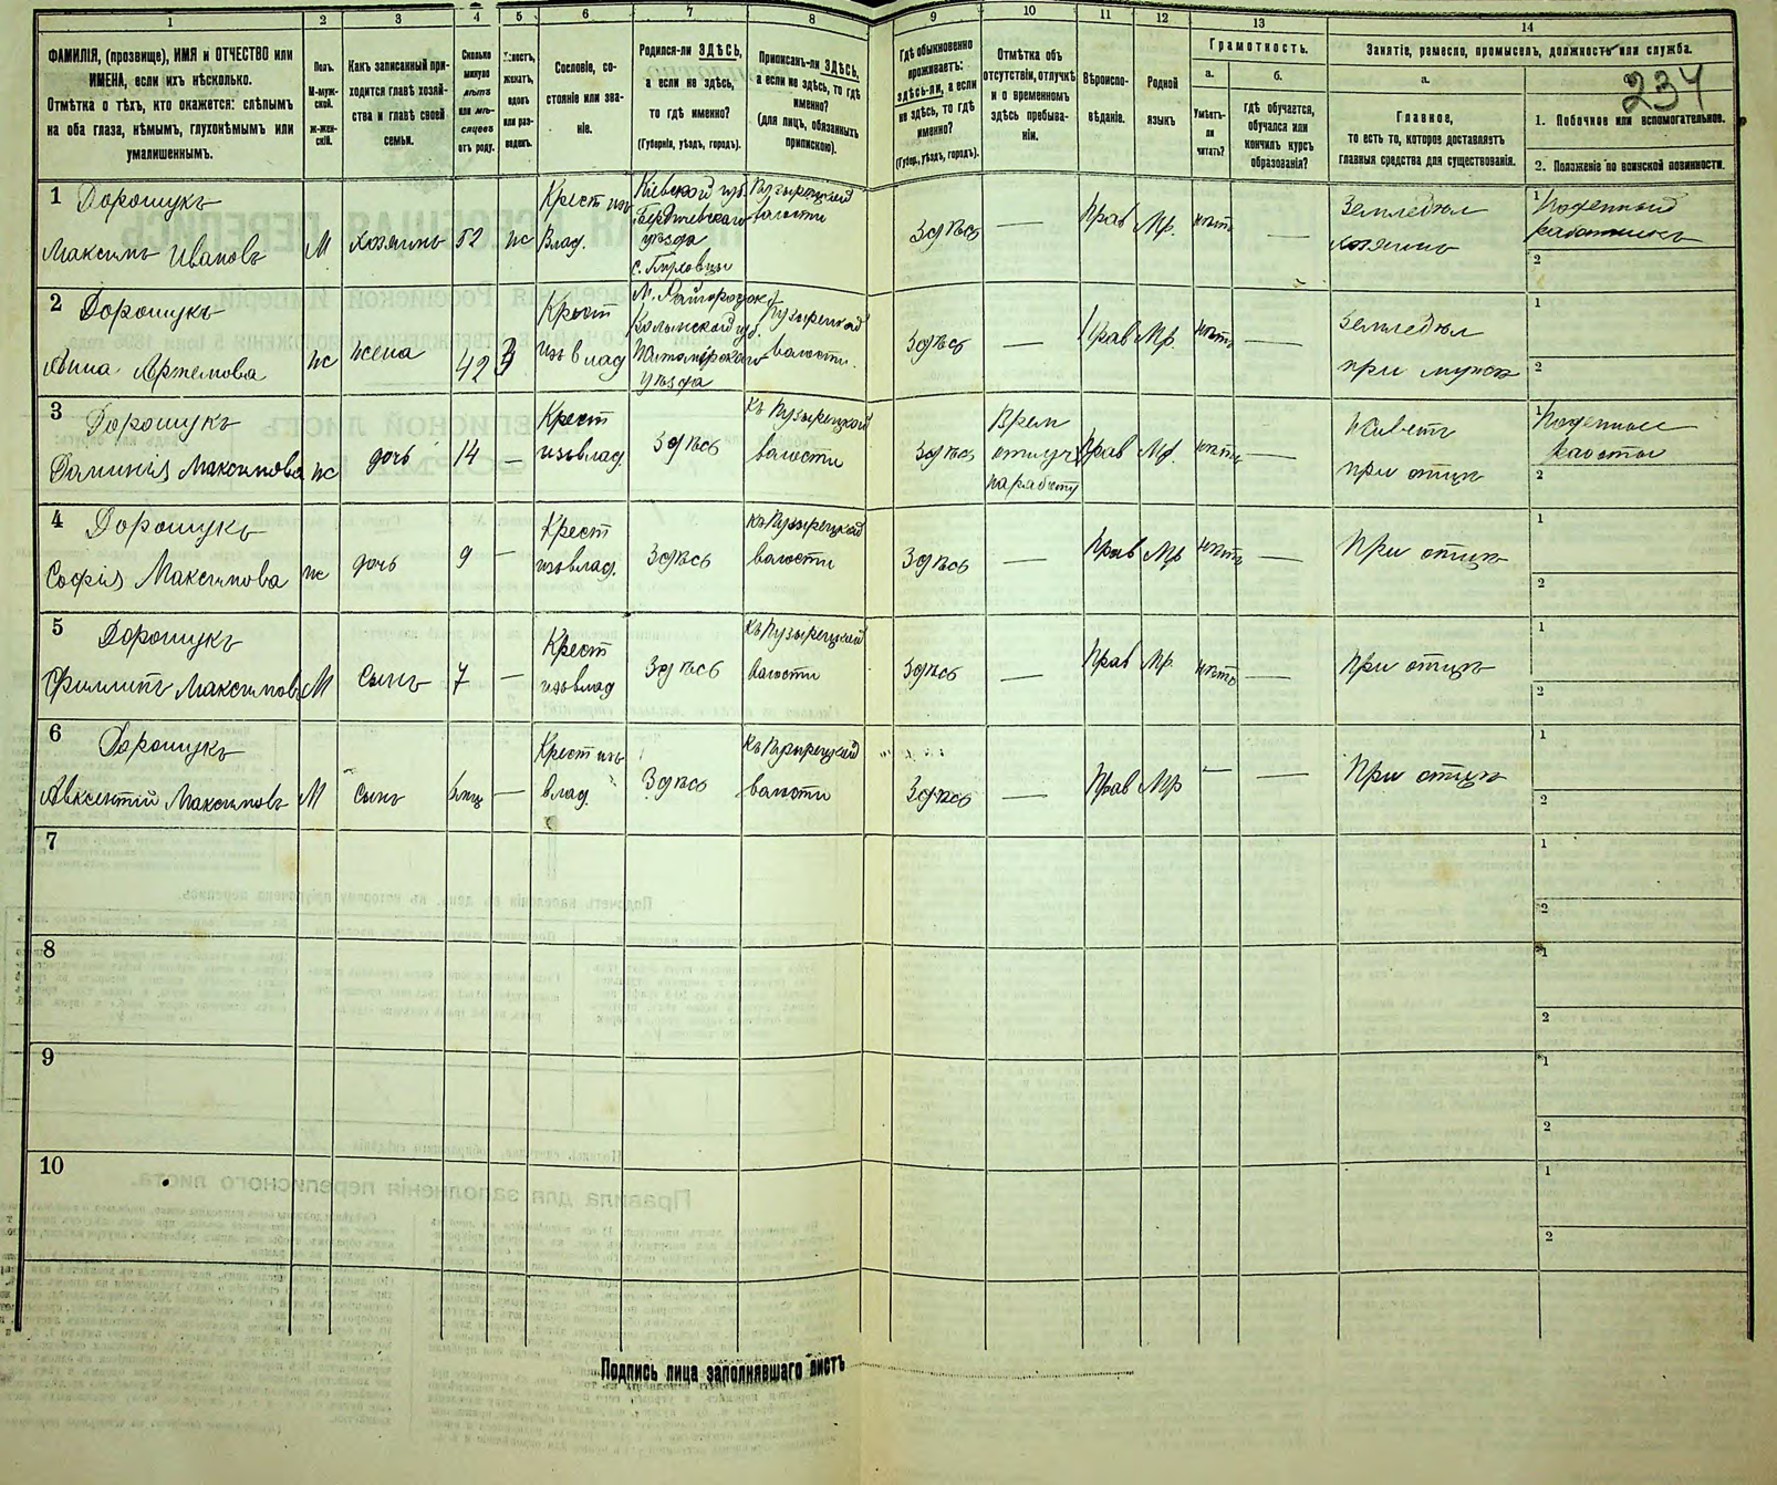 1 2 3 4 5 6 7 8 9 10 11 12 13 14
ФАМИЛІЯ, (прозвище), ИМЯ и ОТЧЕСТВО или
ИМЕНА, если ихъ нѣсколько.
Отмѣтка о тѣхъ, кто окажется: слѣпымъ
на оба глаза, нѣмымъ, глухонѣмымъ или
умалишеннымъ.
Полъ.
М-муж-
ской.
ж-жен-
скій.
Какъ записанный при-
ходится главѣ хозяй-
ства и главѣ своей
семьи.
Сколько
минуло
лѣтъ
или мѣ-
сяцевъ
отъ роду.
женатъ,
вдовъ
или раз-
веденъ.
Сословіе, со-
стояніе или зва-
ніе.
Родился-ли ЗДѢСЬ,
а если не здѣсь,
то гдѣ именно?
(Губернія, уѣздъ, городъ).
Приписанъ-ли ЗДѢСЬ,
а если не здѣсь, то гдѣ
именно?
(для лицъ, обязанныхъ
припискою).
Гдѣ обыкновенно
проживаетъ:
здѣсь-ли, а если
не здѣсь, то гдѣ
именно?
(Губер., уѣздъ, городъ).
Отмѣтка объ
отсутствіи, отлучкѣ
и о временномъ
здѣсь пребыва-
ніи.
Вѣроиспо-
вѣданіе.
Родной
языкъ
Грамотность.
а.
Умѣетъ-
ли
читать?
б.
гдѣ обучается,
обучался или
кончилъ курсъ
образованія?
Занятіе, ремесло, промыселъ, должность или служба.
234
а.
Главное,
то есть то, которое доставляетъ
главныя средства для существованія.
1. Побочное или вспомогательное.
2. Положеніе по воинской повинности.
1 Дорошукъ
Максимъ Ивановъ
М хозяинъ 52 ж
Крест изъ
Влад.
Кіевской губ.
Бердичевскаго
уѣзда
волости
Здѣсь — Прав Мр. нѣтъ —
Земледѣл
хозяинъ
1 Поденный
работникъ
2
2 Дорошукъ
Анна Артемова
ж жена 42
Крест
изъ влад
уѣзда
волости.
Здѣсь — Прав Мр. нѣтъ —
Земледѣл
при мужѣ
1
2
3 Дорошукъ
Максимова
ж дочь 14 —
Крест
изъ влад.
Здѣсь
къ Пузырецкой
волости
Здѣсь
Врем
отлуч
на работу
Прав Мр. нѣтъ —
Живетъ
при отцѣ
1 Поденные
работы
2
4 Дорошукъ
Софія Максимова
ж дочь 9 —
Крест
изъ влад.
Здѣсь
къ Пузырецкой
волости
Здѣсь — Прав Мр нѣтъ —
При отцѣ
1
2
5 Дорошукъ
Филиппъ Максимовъ
М сынъ 7 —
Крест
изъ влад
Здѣсь
къ Пузырецкой
волости
Здѣсь — Прав Мр. нѣтъ —
При отцѣ
1
2
6 Дорошукъ
Авксентій Максимовъ
М сынъ —
Крест изъ
влад.
Здѣсь
къ Пузырецкой
волости
Здѣсь — Прав Мр — —
При отцѣ
1
2
7
1
2
8
1
2
9
1
2
10
1
2
Подпись лица заполнявшаго листъ